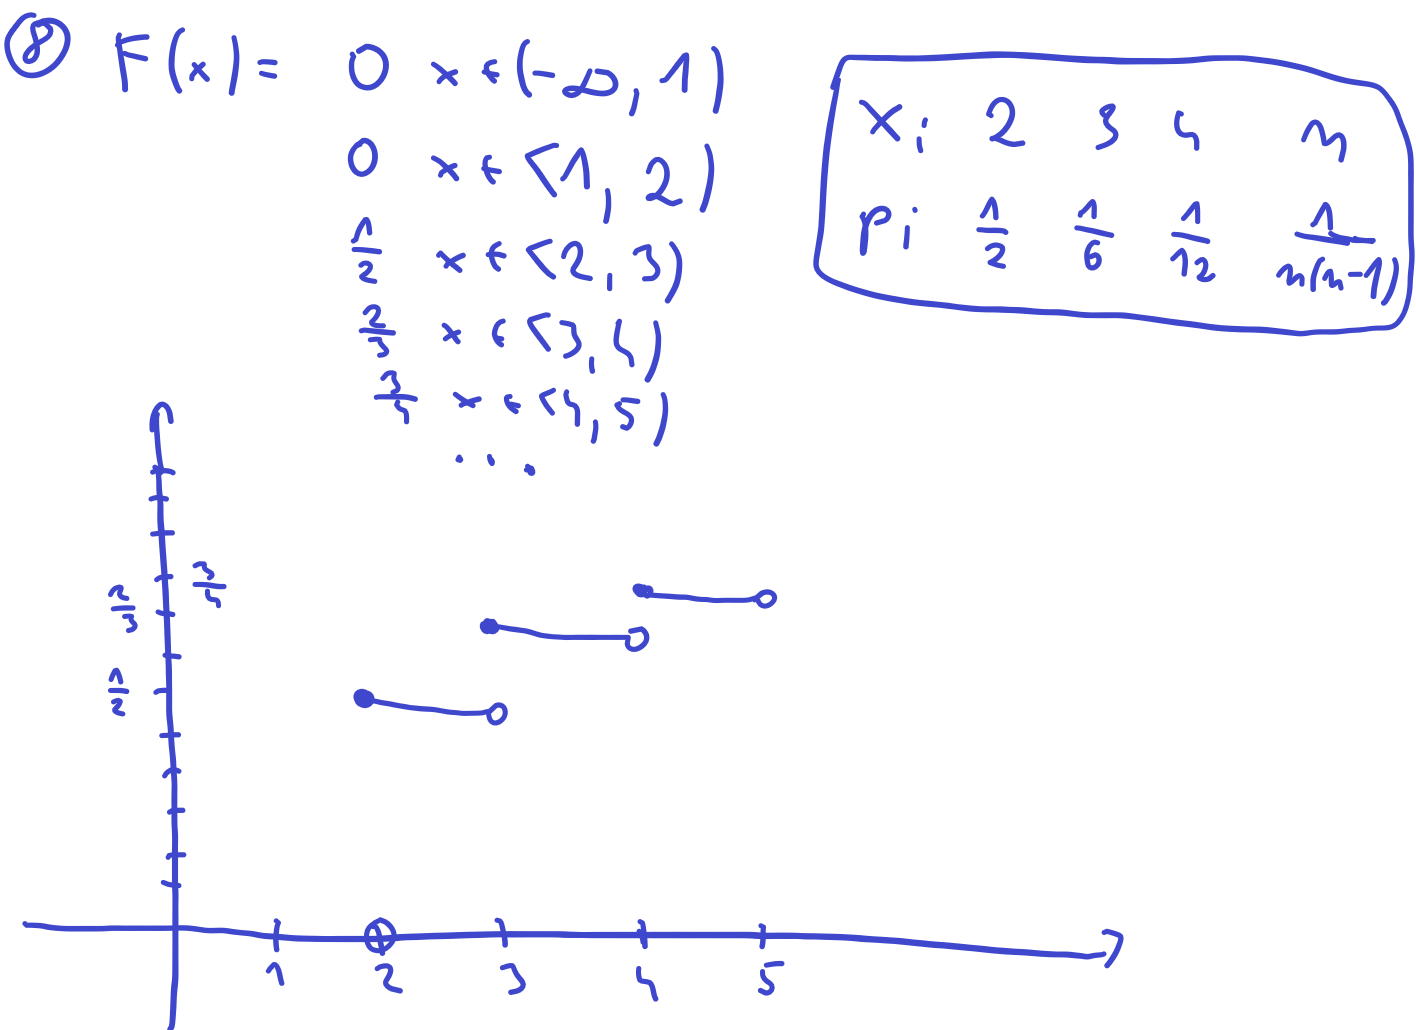 ⑧ F(x) = 0 x ∈ (-∞, 1)
0 x ∈ <1, 2)
1/2 x ∈ <2, 3)
2/3 x ∈ <3, 4)
3/4 x ∈ <4, 5)
...
xi 2 3 4 n
pi 1/2 1/6 1/12 1/n(n-1)
3/4
2/3
1/2
1 2 3 4 5